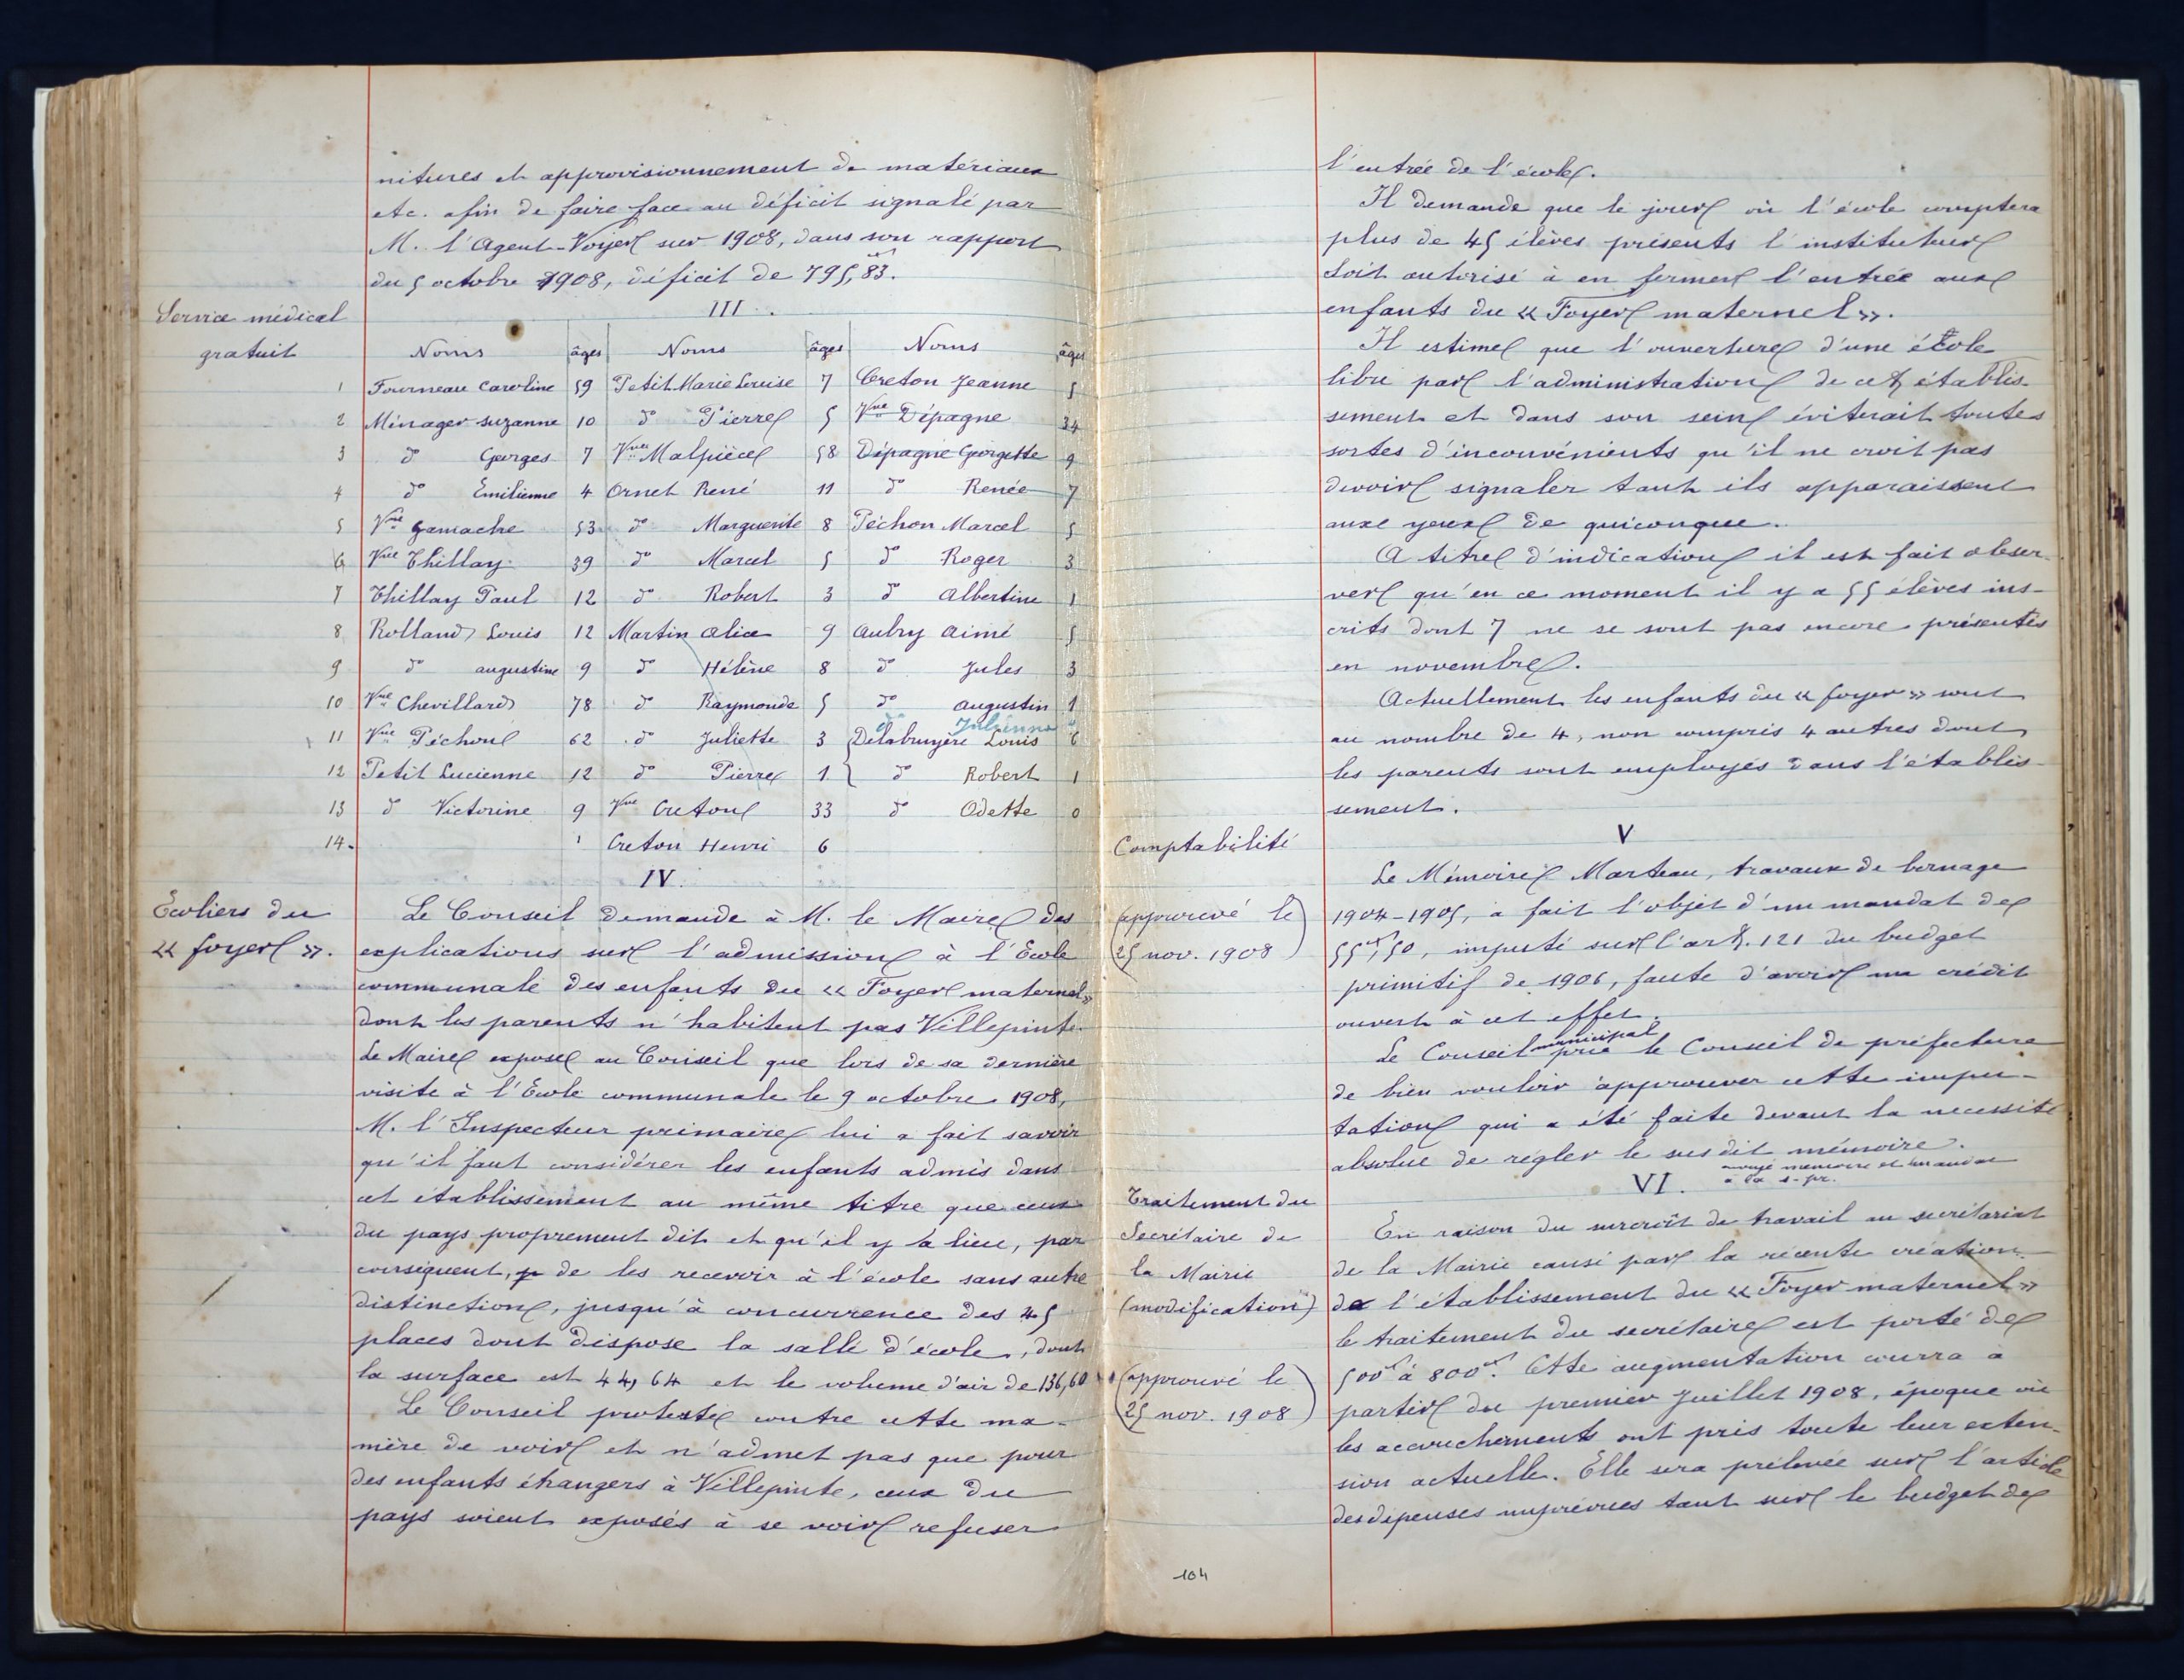 nitures et approvisionnement de matériaux
etc. afin de faire face au déficit signalé par
M. l'Agent-Voyer sur 1908, dans son rapport
du 5 octobre 1908, déficit de 795,83.
Service médical
gratuit
III.
Noms âges Noms âges Noms âges
1 Fourneau Caroline 59 Petit Marie Louise 7 Creton Jeanne 5
2 Ménager Suzanne 10 do Pierre 5 Vve Dépagne 34
3 do Georges 7 Vve Malpièce 58 Dépagne Georgette 9
4 do Emilienne 4 Ornet René 11 do Renée 7
5 Vve Gamache 53 do Marguerite 8 Péchon Marcel 5
6 Vve Thillay 39 do Marcel 5 do Roger 3
7 Thillay Paul 12 do Robert 3 do Albertine 1
8 Rolland Louis 12 Martin Alice 9 Aubry Aimé 5
9 do Augustine 9 do Hélène 8 do Jules 3
10 Vve Chevillard 78 do Raymonde 5 do Augustin 1
do Julienne
11 Vve Péchoul 62 do Juliette 3 Delabruyère Louis 6
12 Petit Lucienne 12 do Pierre 1 do Robert 1
13 do Victorine 9 Vve Creton 33 do Odette 0
14. Creton Henri 6
IV.
Ecoliers du
« foyer ».
Le Conseil demande à M. le Maire des
explications sur l'admission à l'Ecole
communale des enfants du « Foyer maternel »
dont les parents n'habitent pas Villepinte.
Le Maire expose au Conseil que lors de sa dernière
visite à l'Ecole communale le 9 octobre 1908,
M. l'Inspecteur primaire lui a fait savoir
qu'il faut considérer les enfants admis dans
cet établissement au même titre que ceux
du pays proprement dit et qu'il y a lieu, par
conséquent, de les recevoir à l'école sans autre
distinction, jusqu'à concurrence des 45
places dont dispose la salle d'école, dont
la surface est 44,64 et le volume d'air de 136,60
Le Conseil proteste contre cette ma-
nière de voir et n'admet pas que pour
des enfants étrangers à Villepinte, ceux du
pays soient exposés à se voir refuser
l'entrée de l'école.
Il demande que le jour où l'école comptera
plus de 45 élèves présents l'instituteur
soit autorisé à en fermer l'entrée aux
enfants du « Foyer maternel ».
Il estime que l'ouverture d'une école
libre par l'administration de cet établis-
sement et dans son sein éviterait toutes
sortes d'inconvénients qu'il ne croit pas
devoir signaler tant ils apparaissent
aux yeux de quiconque.
A titre d'indication il est fait obser-
ver qu'en ce moment il y a 55 élèves ins-
crits dont 7 ne se sont pas encore présentés
en novembre.
Actuellement les enfants du « foyer » sont
au nombre de 4, non compris 4 autres dont
les parents sont employés dans l'établis-
sement.
Comptabilité
V
Le Mémoire Marteau, travaux de bornage
(approuvé le
25 nov. 1908)
1904-1905, a fait l'objet d'un mandat de
55f,50, imputé sur l'art. 121 du budget
primitif de 1906, faute d'avoir un crédit
ouvert à cet effet.
Le Conseil municipal prie le Conseil de préfecture
de bien vouloir approuver cette impu-
tation qui a été faite devant la necessité
absolue de régler le susdit mémoire.
envoyé mémoire et mandat
à la s-pr.
VI.
Traitement du
Secrétaire de
la Mairie
(modification)
En raison du surcroît de travail au secrétariat
de la Mairie causé par la récente création
de l'établissement du « Foyer maternel »
le traitement du secrétaire est porté de
(approuvé le
25 nov. 1908)
500f à 800f. Cette augmentation courra à
partir du premier Juillet 1908, époque où
les accouchements ont pris toute leur exten-
sion actuelle. Elle sera prélevée sur l'article
des dépenses imprévues tant sur le budget de
104